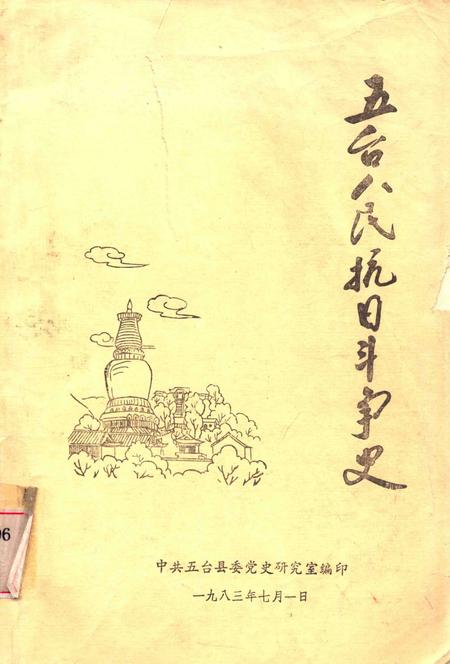 五台人民抗日斗争史
中共五台县委党史研究室编印
一九八三年七月一日
06